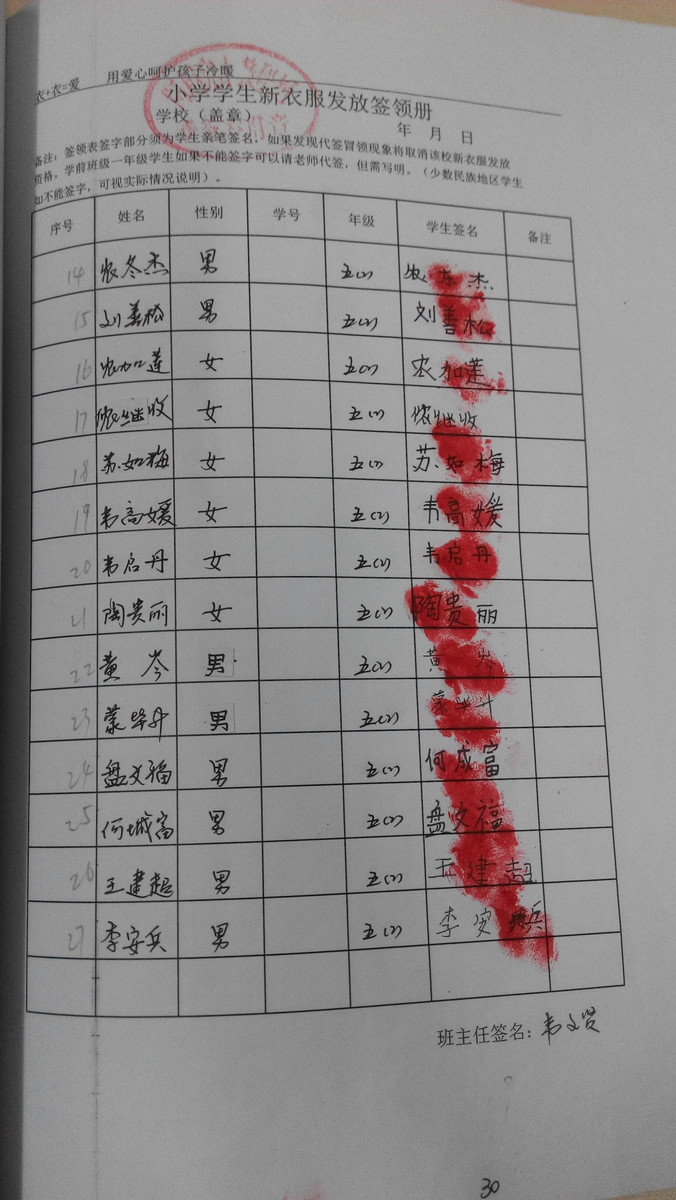 衣+衣=爱 用爱心呵护孩子冷暖
小学学生新衣服发放签领册
学校（盖章） 年 月 日
备注：签领表签字部分须为学生亲笔签名，如果发现代签冒领现象将取消该校新衣服发放
资格。学前班级一年级学生如果不能签字可以请老师代签，但需写明。（少数民族地区学生
如不能签字，可视实际情况说明）。
序号 姓名 性别 学号 年级 学生签名 备注
14 农冬杰 男 五(2) 农冬杰
15 刘善松 男 五(2) 刘善松
16 农加莲 女 五(2) 农加莲
17 侬继收 女 五(2) 侬继收
18 苏如梅 女 五(2) 苏如梅
19 韦高媛 女 五(2) 韦高媛
20 韦启丹 女 五(2) 韦启丹
21 陶贵丽 女 五(2) 陶贵丽
22 黄岑 男 五(2) 黄岑
23 蒙毕升 男 五(2) 蒙毕升
24 盘文福 男 五(2) 何成富
25 何城富 男 五(2) 盘文福
26 王建超 男 五(2) 王建超
27 李安兵 男 五(2) 李安兵
班主任签名：韦文贤
30